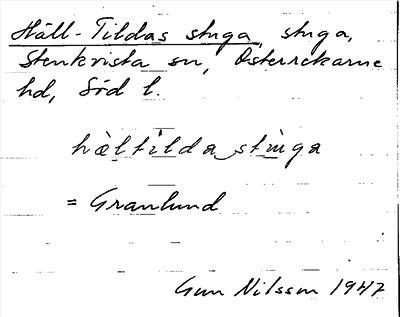 Häll-Tildas stuga, stuga,
Stenkvista sn, Österrekarne
hd, Söd l.
hὲltìlda stùga
= Granlund
Gun Nilsson 1947